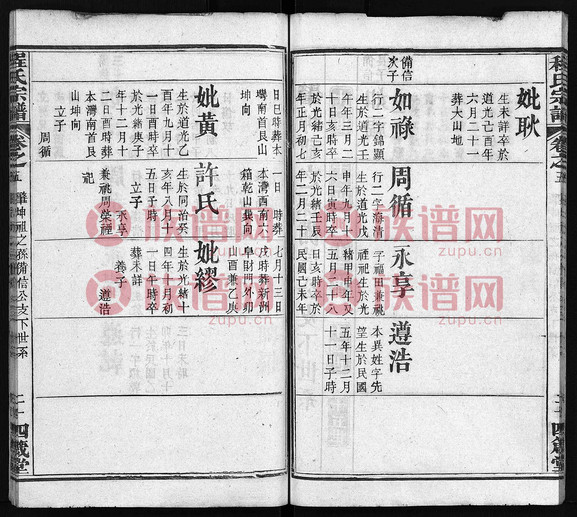 程氏宗譜
卷之五
妣耿
生未詳卒於
道光乙酉年
六月二十一
葬大山地
備信
次子
如祿
行二字錦顯
生於道光壬
午年三月二
十二日亥時
卒於光緒丙
年正月初七
日巳時葬本
灣南首艮山
坤向
妣黃
生於道光乙
酉年九月十
一日酉時卒
於光緒庚子
年十二月十
二日酉時葬
本灣南首艮
山坤向
立子
周循
周循
行二字海清
生於道光戊
申年九月十
六日寅時卒
於光緒壬辰
年二月二十
一日 時葬
本灣西南六
箱乾山巽向
許氏
生於同治癸
亥年八月十
立子
永享
兼祧周榮禋
祀
永享
字福田兼祧
禋祀生於光
緒甲申年又
五月二十八
日亥時卒於
民國己未年
七月十三日
戌時葬新洲
阜財門外卯
山酉兼乙與
妣繆
生於光緒十
四年十月十
一日午時卒
葬未詳
養子
遵浩
遵浩
本異姓字先
望生於民國
五年十二月
十一日子時
羅坤祖之孫備信公支下世系
二十
四箴堂